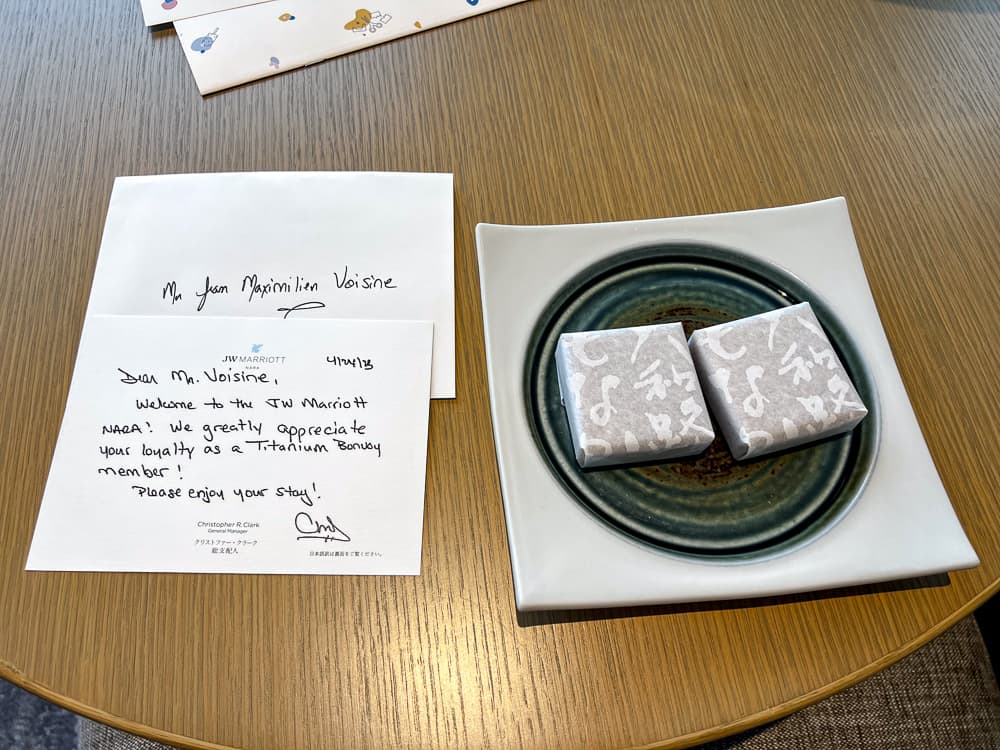 Mr Jean Maximilien Voisine
JW MARRIOTT
NARA
4/24/23
Dear Mr. Voisine,
Welcome to the JW Marriott
NARA! We greatly appreciate
your loyalty as a Titanium Bonvoy
member!
Please enjoy your stay!
Christopher R. Clark
General Manager
クリストファー・クラーク
総支配人
日本語訳は裏面をご覧ください。